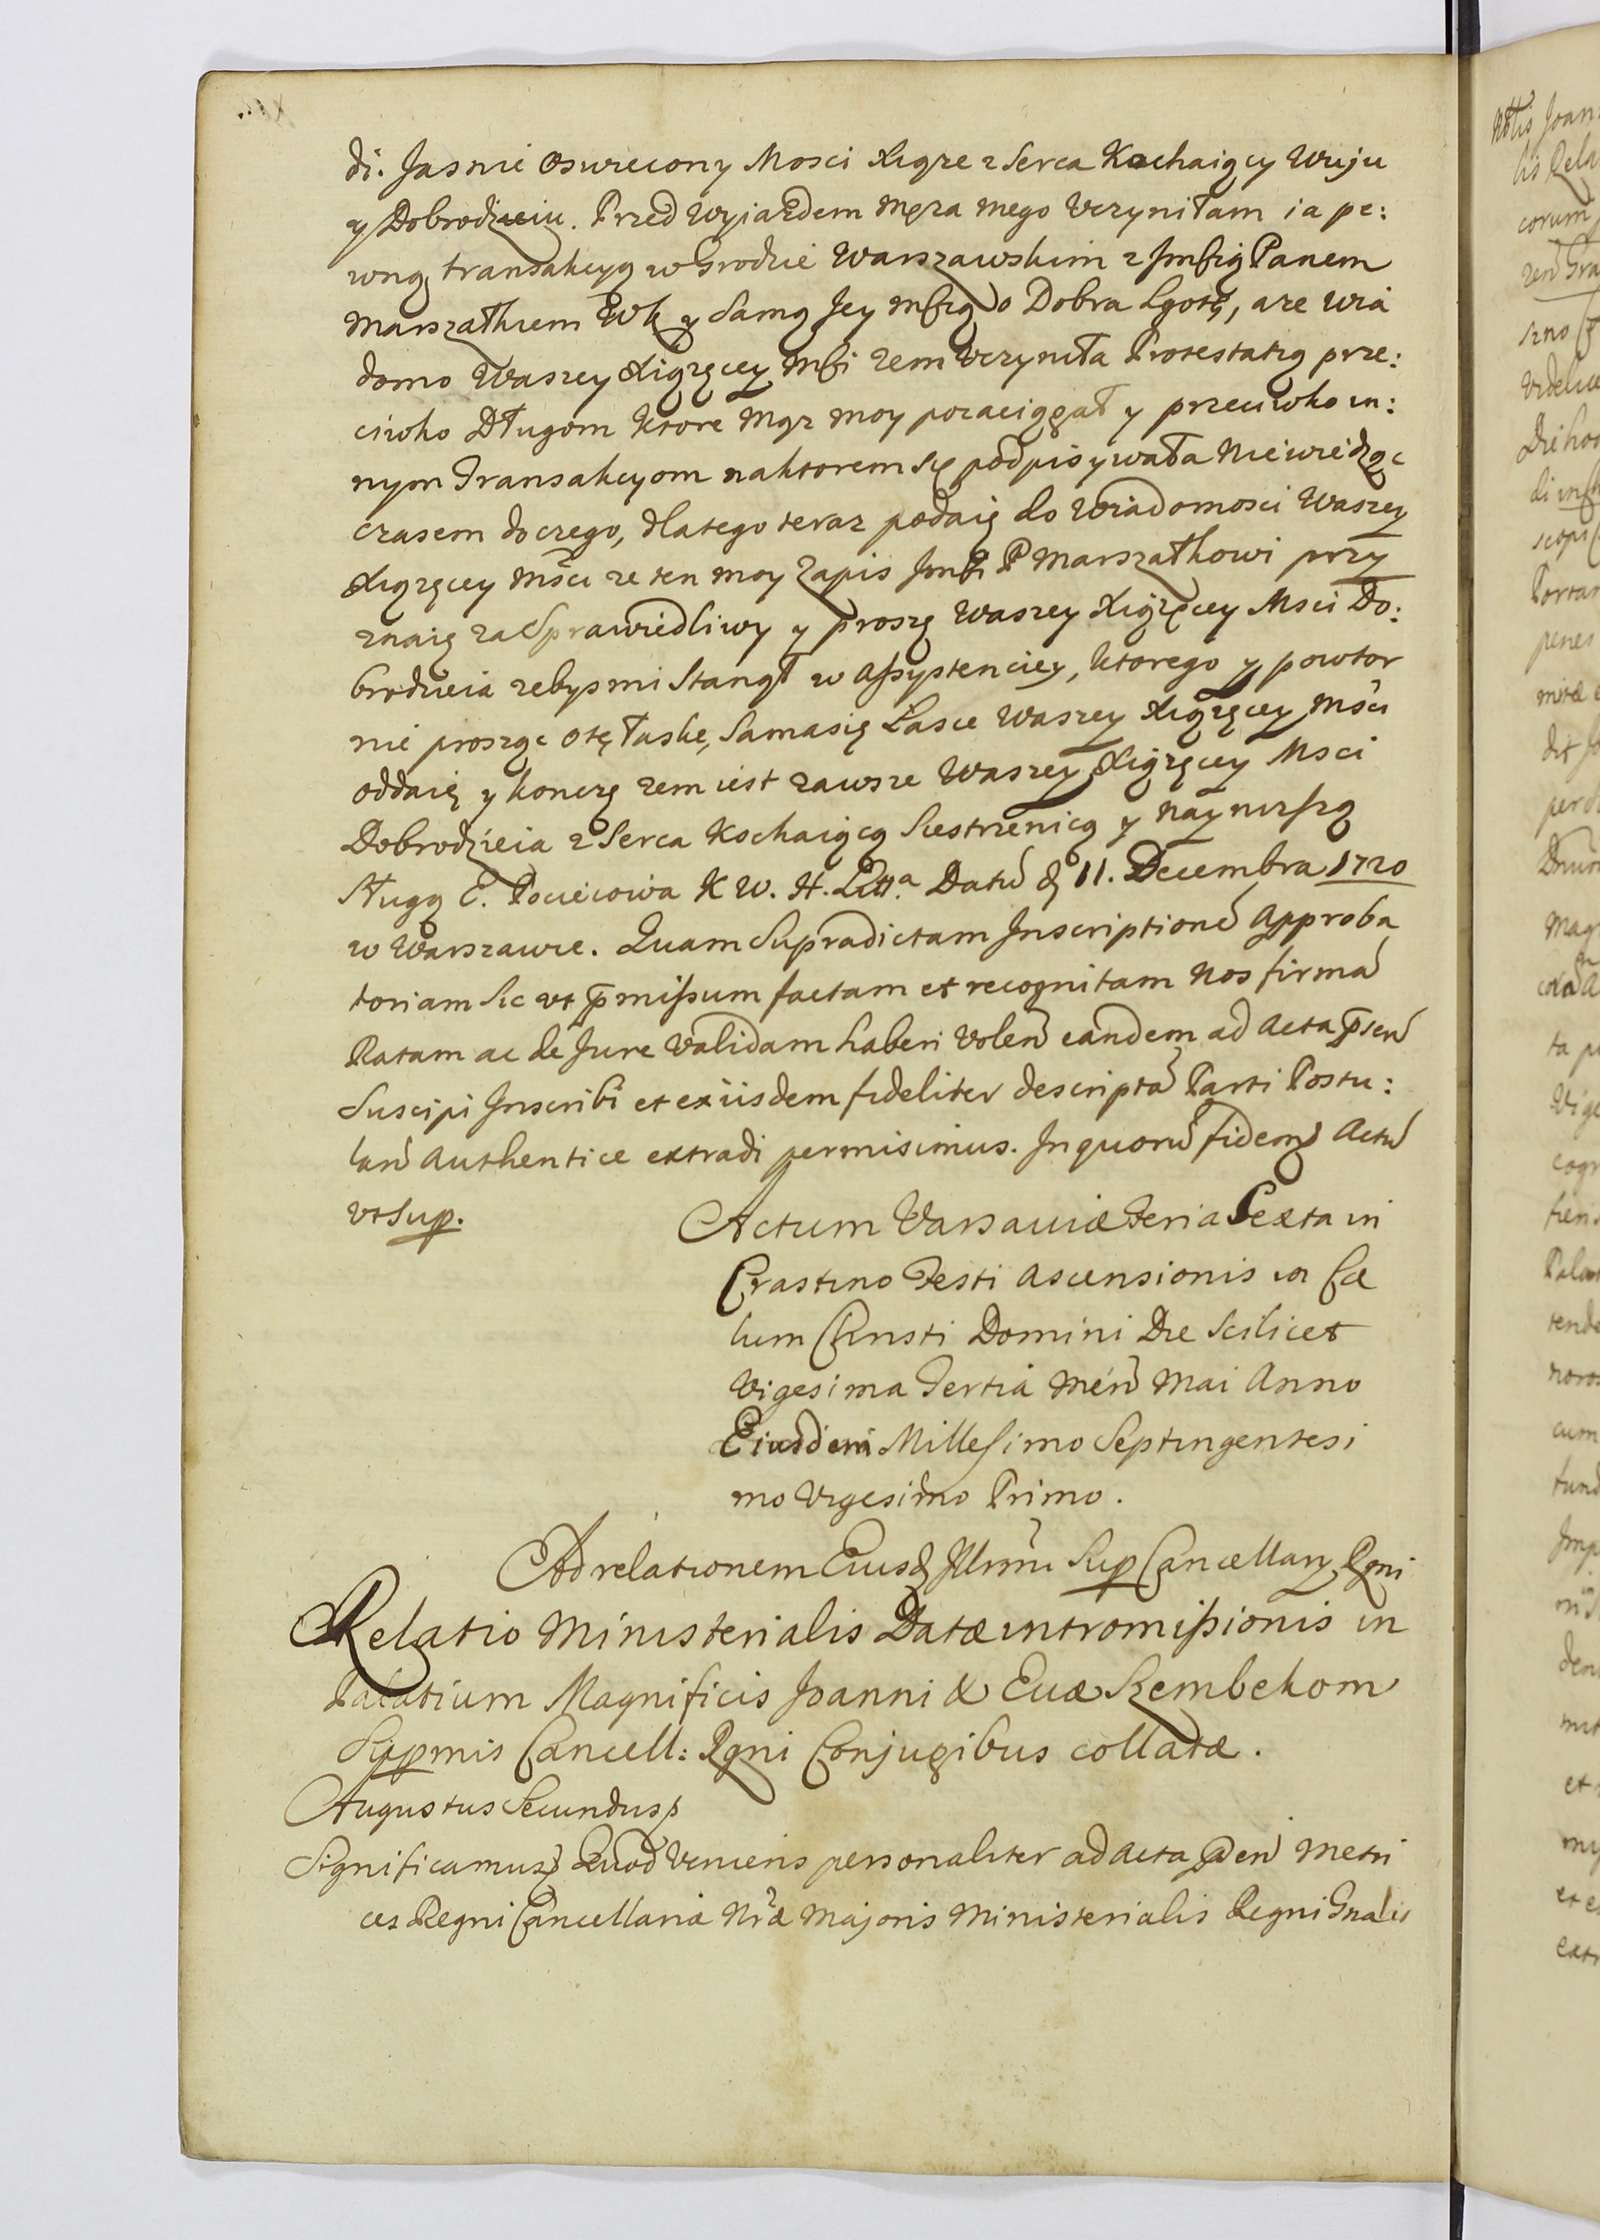 di. Jasnie Oswiecony Mosci Xiąze z Serca Kochaiący Wuju
y Dobrodzieiu. Przed wyiazdem męza mego Vczyniłam ia pe:
wną transakcyą w Grodzie Warszawskim z Jmścią Panem
Marszałkiem Wk y Samą Jey mścią o Dobra Lgotę, aze wia
domo Waszey Xiąźęcey Mści zem Vczyniła Protestatią prze:
ciwko Długom ktore Mąz moy pozaciągał y przeciwko in:
nym Transakcyom naktorem się podpisywała Niewiedząc
czasem doczego, dlatego teraz podaię do Wiadomosci Waszey
Xiąźęcey Mści ze ten moy Zapis Jmści P Marszałkowi przy
znaię za Sprawiedliwy y proszę Waszey Xiąźęcey Msci Do:
brodzieia zebysmi Stanął w assystenciey, ktorego y powtor
nie prosząc otę łaskę, Samasię Łasce Waszey Xiąźęcey Mści
oddaię y konczę zem iest zawsze Waszey Xiąźęcey Msci
Dobrodzieia z Serca Kochaiącą Siestrzenicą y nayniższą
Sługą E. Pocieiowa K W. H. Litt.a Datū d 11. Decembra 1720
w Warszawie. Quam Supradictam Inscriptionē Approba
toriam Sic vt p̄missum factam et recognitam Nos firmā
Ratam ac de Jure Validam haberi volen̄ eandem ad Acta p̄sen̄
Suscipi Inscribi et exiisdem fideliter descriptā Parti Postu:
lan̄ Authentice extradi permisimus. In quorū fidem Actū
vt Sup.
Actum Varsaviæ Feria Sexta in
Crastino Festi Ascensionis in Cæ
lum Christi Domini Die Scilicet
Vigesima Tertia Men̄ Mai Anno
Eiusdem Millesimo Septingentesi
mo Vigesimo Primo.
Ad relationem Eiusd Illrmi Sup Cancellarÿ Rgni
Relatio Ministerialis Datæ intromissionis in
Palatium Magnificis Joanni & Evæ Szembekom
Supmis Cancell: Rgni Conjugibus collatæ.
Augustus Secundus
Significamus Quod Veniens personaliter ad Acta p̄en̄ Metri
ces Regni Cancellariæ Nr̄æ Majoris Ministerialis Regni Gnalis